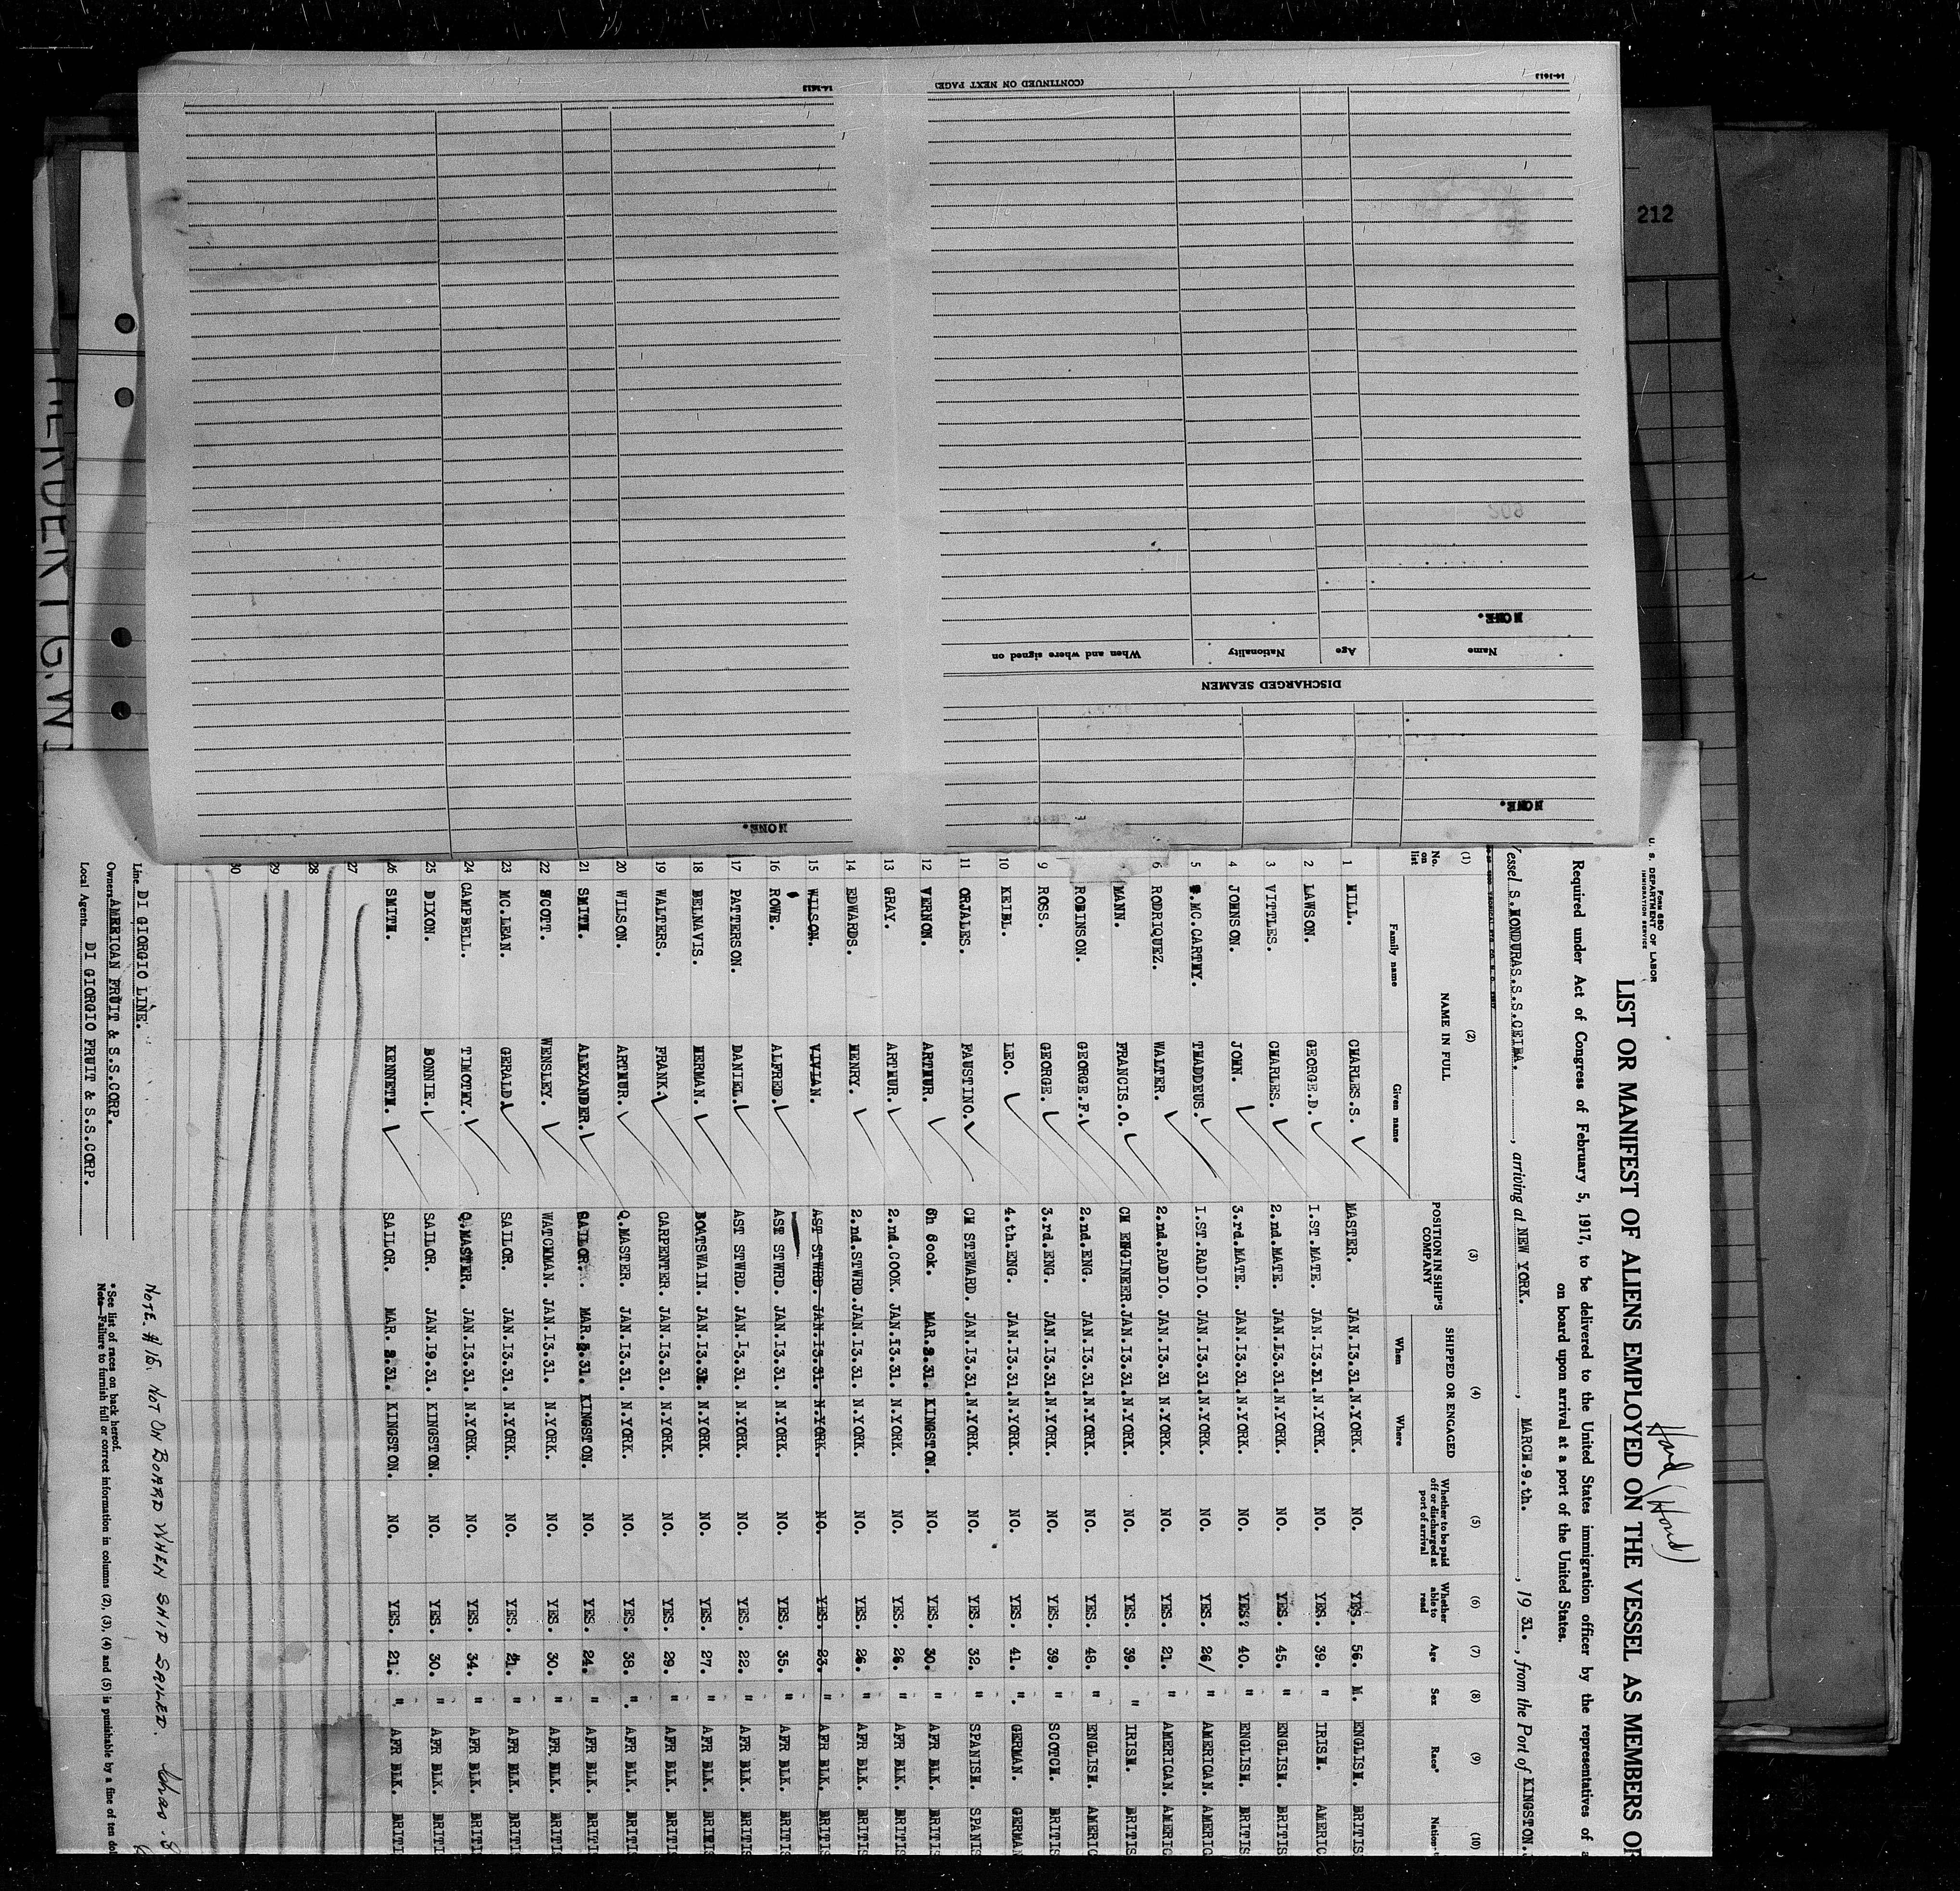 14-1613
14-1613
(CONTINUED ON NEXT PAGE)
NONE.
Name Age Nationality When and where signed on
DISCHARGED SEAMEN
NONE.
NONE.
212
G.W
Form 680
U. S. DEPARTMENT OF LABOR
IMMIGRATION SERVICE
Hond (Hond)
LIST OR MANIFEST OF ALIENS EMPLOYED ON THE VESSEL AS MEMBERS OF
Required under Act of Congress of February 5, 1917, to be delivered to the United States immigration officer by the representatives of a
on board upon arrival at a port of the United States.
Vessel S.MONDURAS.S.S.CEIBA., arriving at NEW YORK., MARCM.9.th., 19 31., from the Port of KINGSTON.
(1) (2) (3) (4) (5) (6) (7) (8) (9) (10)
No. on list NAME IN FULL POSITION IN SHIP'S COMPANY SHIPPED OR ENGAGED Whether to be paid off or discharged at port of arrival Whether able to read Age Sex Race* Nation
Family name Given name When Where
1 MILL. CMARLES.S. MASTER. JAN.I3.31. N.YORK. NO. YES. 56. M. ENGLISM. BRITIS
2 LAWSON. GEORGE.D. I.ST.MATE. JAN.I3.31. N.YORK. NO. YES. 39. " IRISM. AMERIC
3 VITTLES. CMARLES. 2.nd.MATE. JAN.I3.31. N.YORK. NO. YES. 45. " ENGLISM. BRITIS
4 JOMNSON. JOMN. 3.rd.MATE. JAN.I3.31. N.YORK. NO. YES? 40. " ENGLISM. BRITIS
5 MC.CARTMY. TMADDEUS. I.ST.RADIO. JAN.I3.31. N.YORK. NO. YES. 26/ " AMERICAN. AMERIC
6 RODRIQUEZ. WALTER. 2.nd.RADIO. JAN.I3.31 N.YORK. NO. YES. 21. " AMERICAN. AMERIC
MANN. FRANCIS.O. CM ENGINEER. JAN.I3.31. N.YORK. NO. YES. 39. " IRISM. BRITIS
ROBINSON. GEORGE.F. 2.nd.ENG. JAN.I3.31. N.YORK. NO. YES. 48. " ENGLISM. AMERIC
9 ROSS. GEORGE. 3.rd.ENG. JAN.I3.31. N.YORK. NO. YES. 39. " SCOTCM. BRITIS
10 KEIBL. LEO. 4.th.ENG. JAN.I3.31. N.YORK. NO. YES. 41. " GERMAN. GERMAN
11 ORJALES. FAUSTINO. CM STEWARD. JAN.I3.31. N.YORK. NO. YES. 32. " SPANISM. SPANIS
12 VERNON. ARTMUR. Cook. MAR.2.31. KINGSTON. NO. YES. 30. " AFR BLK. BRITIS
13 GRAY. ARTMUR. 2.nd.COOK. JAN.I3.31. N.YORK. NO. YES. 26. " AFR BLK. BRITIS
14 EDWARDS. MENRY. 2.nd.STWRD. JAN.I3.31. N.YORK. NO. YES. 26. " AFR BLK. BRITIS
15 WILSON. VIVIAN. AST STWRD. JAN.I3.31. N.YORK. NO. YES. 23. " AFR BLK. BRITIS
16 ROWE. ALFRED. AST STWRD. JAN.I3.31. N.YORK. NO. YES. 35. " AFR BLK. BRITIS
17 PATTERSON. DANIEL. AST STWRD. JAN.I3.31. N.YORK. NO. YES. 22. " AFR BLK. BRITIS
18 BELNAVIS. MERMAN. BOATSWAIN. JAN.I3.31. N.YORK. NO. YES. 27. " AFR BLK.
19 WALTERS. FRANK. CARPENTER. JAN.I3.31. N.YORK. NO. YES. 29. " AFR BLK. BRITIS
20 WILSON. ARTMUR. Q.MASTER. JAN.I3.31. N.YORK. NO. YES. 38. " AFR BLK. BRITI
21 SMITM. ALEXANDER. SAILOR. MAR.31. KINGSTON. NO. YES. 24. " AFR BLK. BRITI
22 SCOTT. WENSLEY. WATCMMAN. JAN.I3.31. N.YORK. NO. YES. 30. " AFR BLK. BRITI
23 MC.LEAN. GERALD. SAILOR. JAN.I3.31. N.YORK. NO. YES. 21. " AFR BLK. BRITI
24 CAMPBELL. TIMOTMY. Q.MASTER. JAN.I3.31. N.YORK. NO. YES. 34. " AFR BLK. BRITI
25 DIXON. BONNIE. SAILOR. JAN.19.31. KINGSTON. NO. YES. 30. " AFR BLK. BRITI
26 SMITM. KENNETM. SAILOR. MAR.2.31. KINGSTON. NO. YES. 21. " AFR BLK. BRITI
27
28
29
30
NOTE. # 15. NOT ON BOARD WHEN SHIP SAILED. Chas. S
Line DI GIORGIO LINE.
Owners AMERICAN FRUIT & S.S.CORP.
Local Agents DI GIORGIO FRUIT & S.S.CORP.
* See list of races on back hereof.
Note—Failure to furnish full or correct information in columns (2), (3), (4) and (5) is punishable by a fine of ten dol